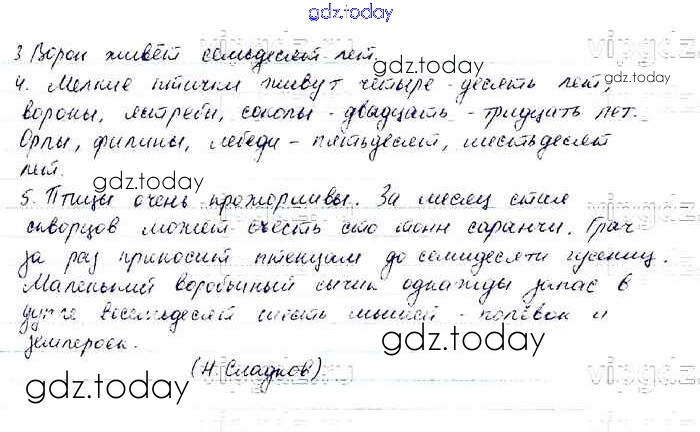 gdz.today
3 Ворон живёт семьдесят лет.
4. Мелкие птички живут четыре - десять лет,
вороны, ястребы, соколы - двадцать - тридцать лет.
Орлы, филины, лебеди - пятьдесят, шестьдесят
лет.
5. Птицы очень прожорливы. За месяц стая
скворцов может съесть сто тонн саранчи. Грач
за раз приносит птенцам до семидесяти гусениц.
Маленький воробьиный сычик однажды запас в
дупле восемьдесят шесть мышей - полёвок и
землероек.
(Н. Сладков).
gdz.today
gdz.today
gdz.today
gdz.today
gdz.today
vipgdz
vipgdz
vipgdz
vipgdz